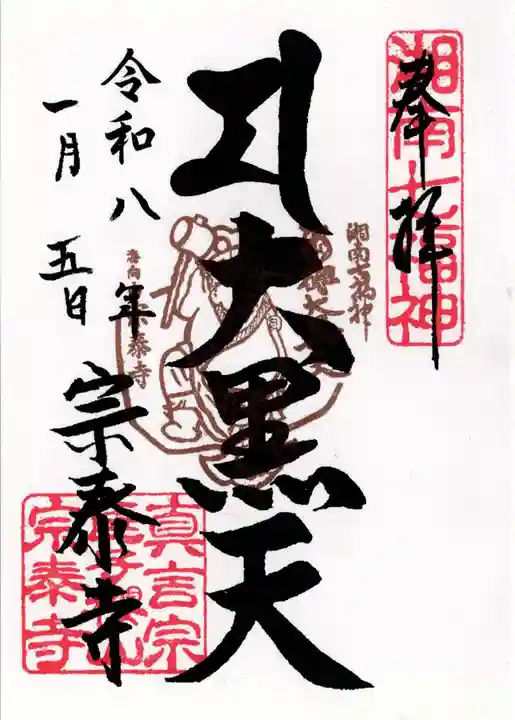 奉拝
湘南七福神
大黒天
湘南七福神
令和八年
一月五日
宗泰寺
宗泰寺
真言宗
宗泰寺